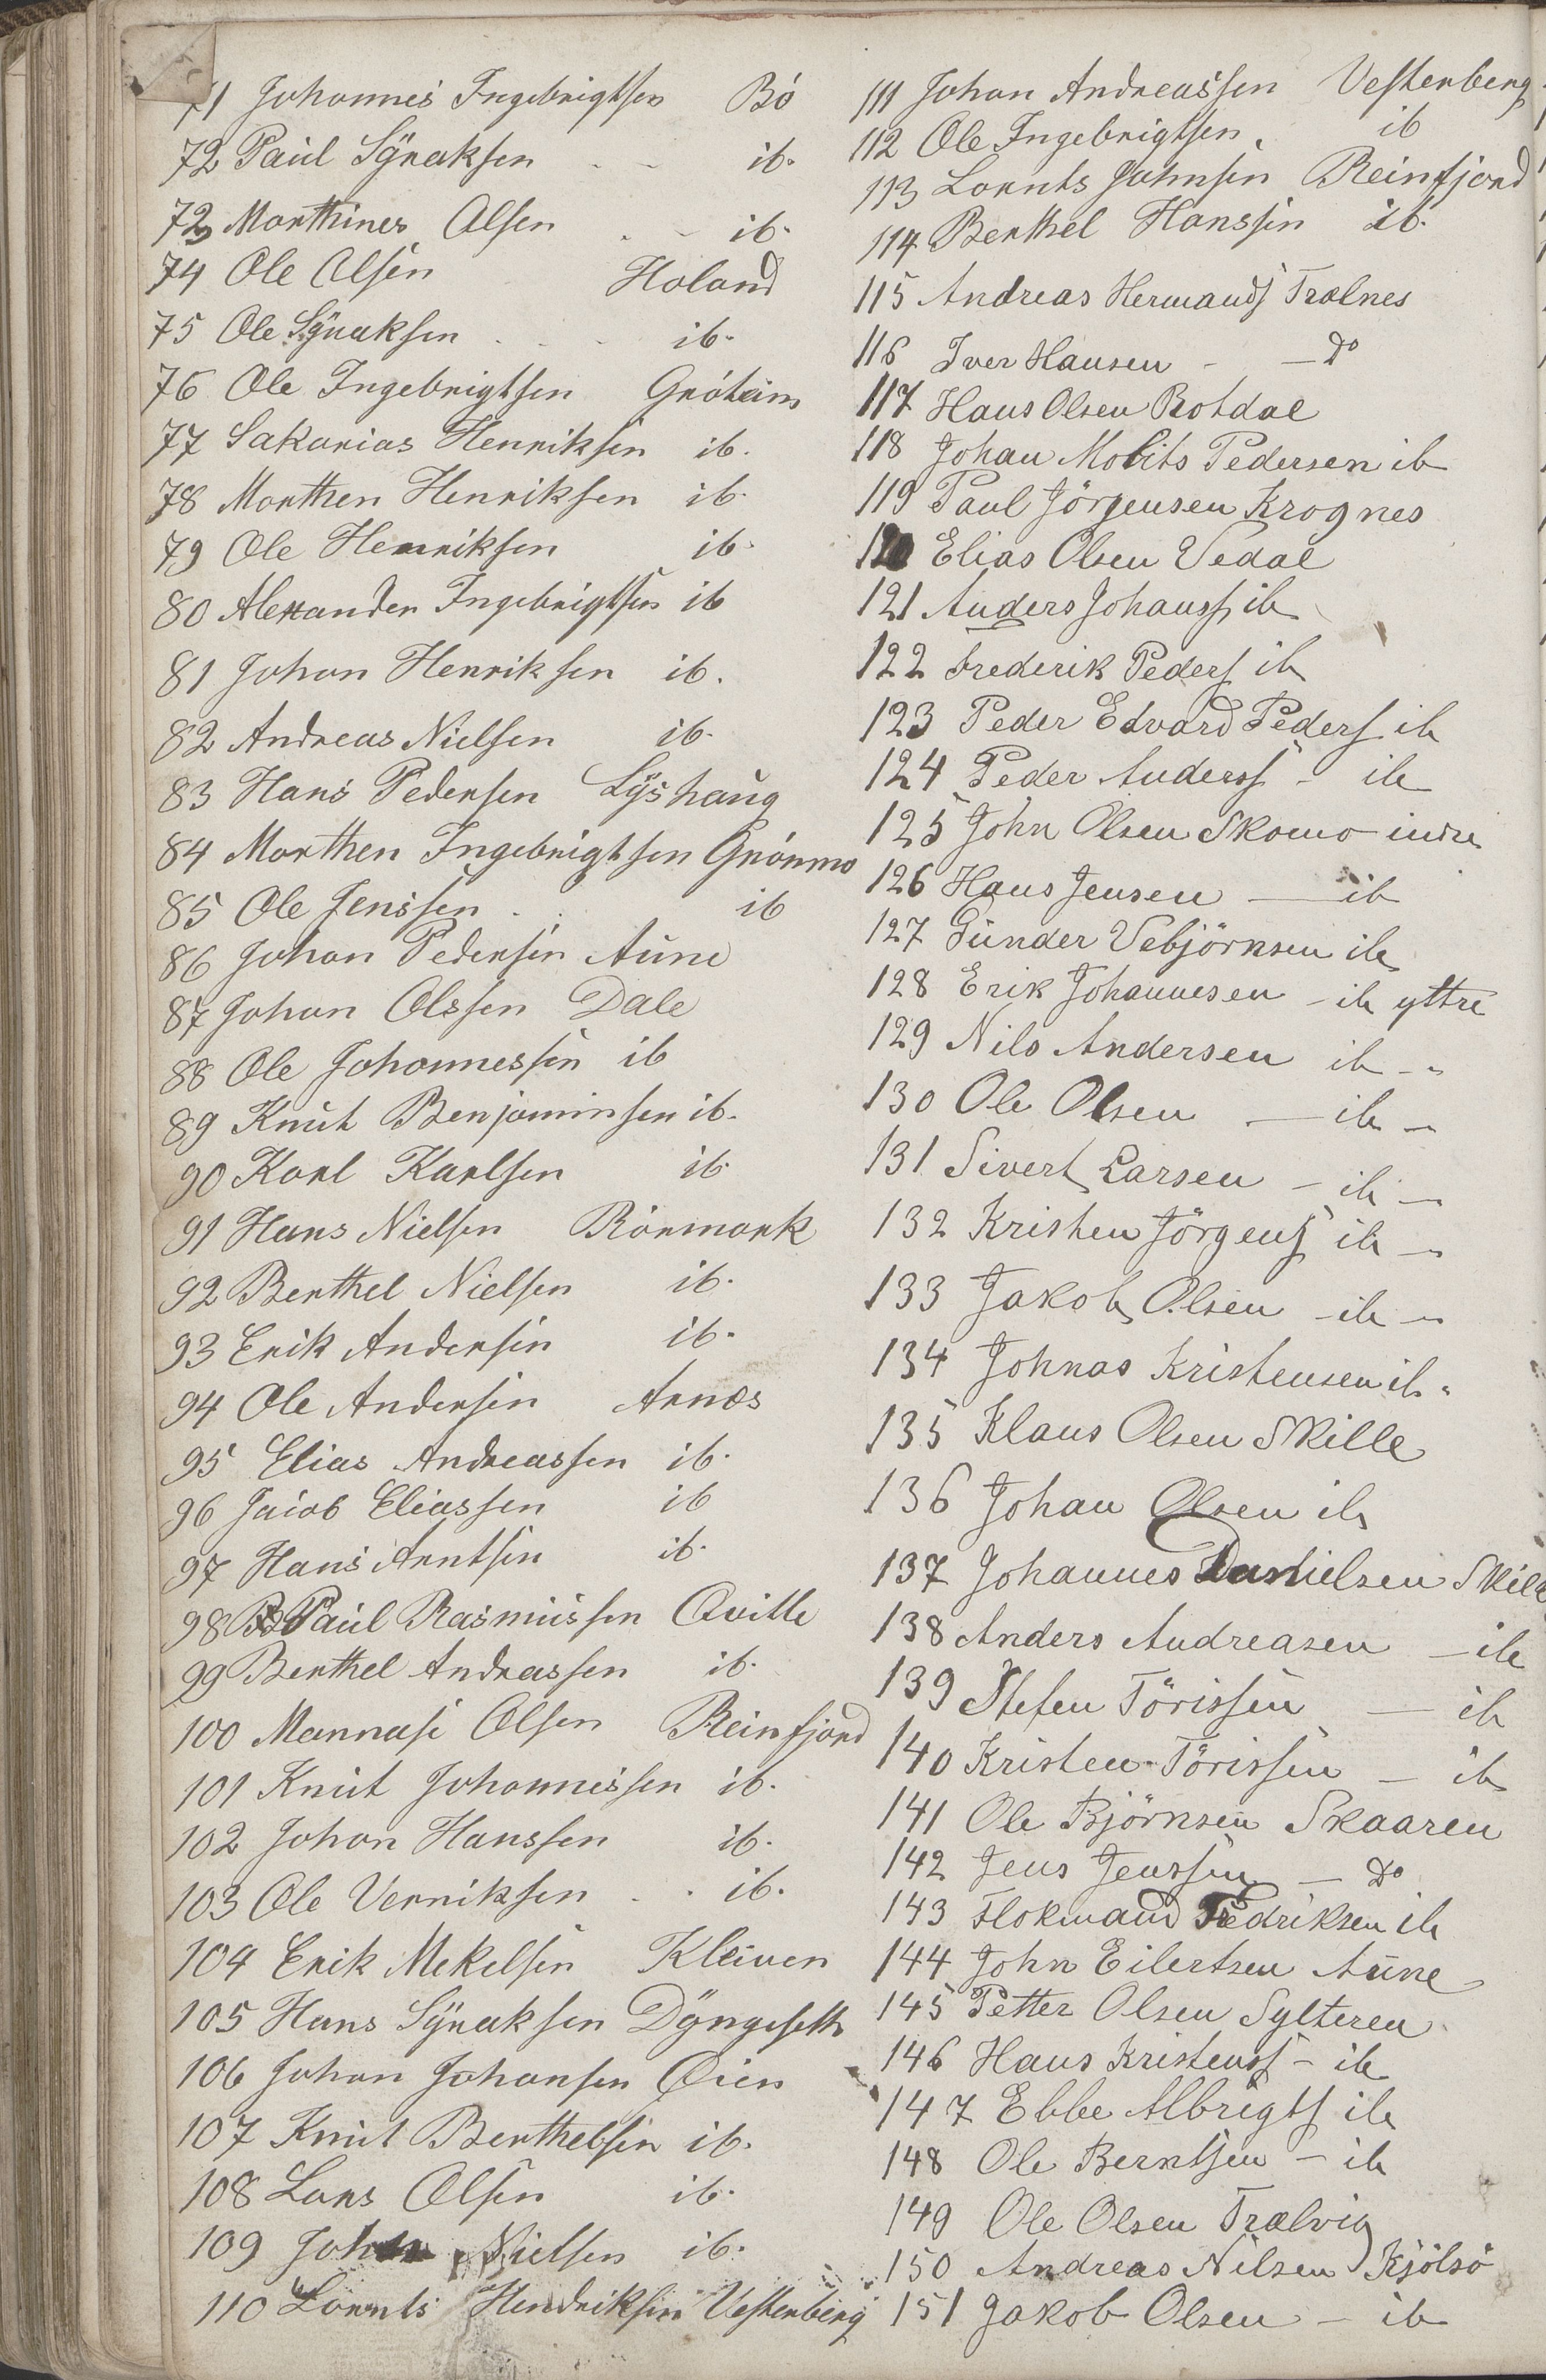 71 Johannes Ingebrigtsen Bó
72 Paul Sÿraksen - - ib.
73 Morthines Olsen - - ib.
74 Ole Olsen Holand
75 Ole Sÿraksen - - - ib.
76 Ole Ingebrigtsen Gróteim
77 Sakarias Henriksen ib.
78 Morthen Henriksen ib.
79 Ole Henriksen ib.
80 Alexander Ingebrigtsen ib
81 Johan Henriksen ib.
82 Andreas Nielsen ib.
83 Hans Pedersen Lÿshaug
84 Morthen Ingebrigtsen Grónmo
85 Ole Jenssen - - ib
86 Johan Pedersen Aune
87 Johan Olssen Dale
88 Ole Johannessen ib
89 Knut Benjaminsen ib.
90 Karl Karlsen ib.
91 Hans Nielsen Rórmark
92 Berthel Nielsen ib.
93 Erik Andersen ib.
94 Ole Andersen Arnæs
95 Elias Andreassen ib.
96 Jacob Eliassen ib
97 Hans Arntsen ib.
98 Paul Rasmussen Qvitle
99 Berthel Andreassen ib.
100 Mannase Olsen Reinfjord
101 Knut Johannessen ib.
102 Johan Hanssen ib.
103 Ole Verriksen - - ib.
104 Erik Mekelsen Kleiven
105 Hans Sÿraksen Dÿngeseth
106 Johan Johansen Óien
107 Knut Berthelsen ib.
108 Lars Olsen ib.
109 Johan Nielsen ib.
110 Lornts Hendriksen Vestenberg
111 Johan Andreassen Vestenberg
112 Ole Ingebrigtsen. ib
113 Lornts Johnsen Reinfjord
114 Berthel Hanssen ib.
115 Andreas Hermands Trælnes
116 Iver Hansen - - do
117 Hans Olsen Botdal
118 Johan Molits Pedersen ib
119 Paul Jörgensen Krognes
120 Elias Olsen Vedal
121 Anders Johanss ib
122 Frederik Peders ib
123 Peder Edvard Peders ib
124 Peder Anderss - ib
125 John Olsen Skomo indre
126 Hans Jensen - ib
127 Gunder Vebjörnsen ib
128 Erik Johannesen - ib yttre
129 Nils Andersen ib - "
130 Ole Olsen - ib - "
131 Sivert Larsen - ib - "
132 Kristen Jörgens ib - "
133 Jakob Olsen - ib - "
134 Johnas Kristensen ib "
135 Klaus Olsen Skille
136 Johan Olsen ib
137 Johannes Danielsen Skile
138 Anders Andreasen - ib
139 Stefen Törissen - ib
140 Kristen Törissen - ib
141 Ole Björnsen Skaaren
142 Jens Jenssen - do
143 Flokmand Fredriksen ib
144 John Eilertsen Aune
145 Petter Olsen Sylteren
146 Hans Kristenss - ib
147 Ebbe Albrigts ib
148 Ole Berntsen - ib
149 Ole Olsen Trælvig
150 Andreas Nilsen Kjölsö
151 Jakob Olsen - ib